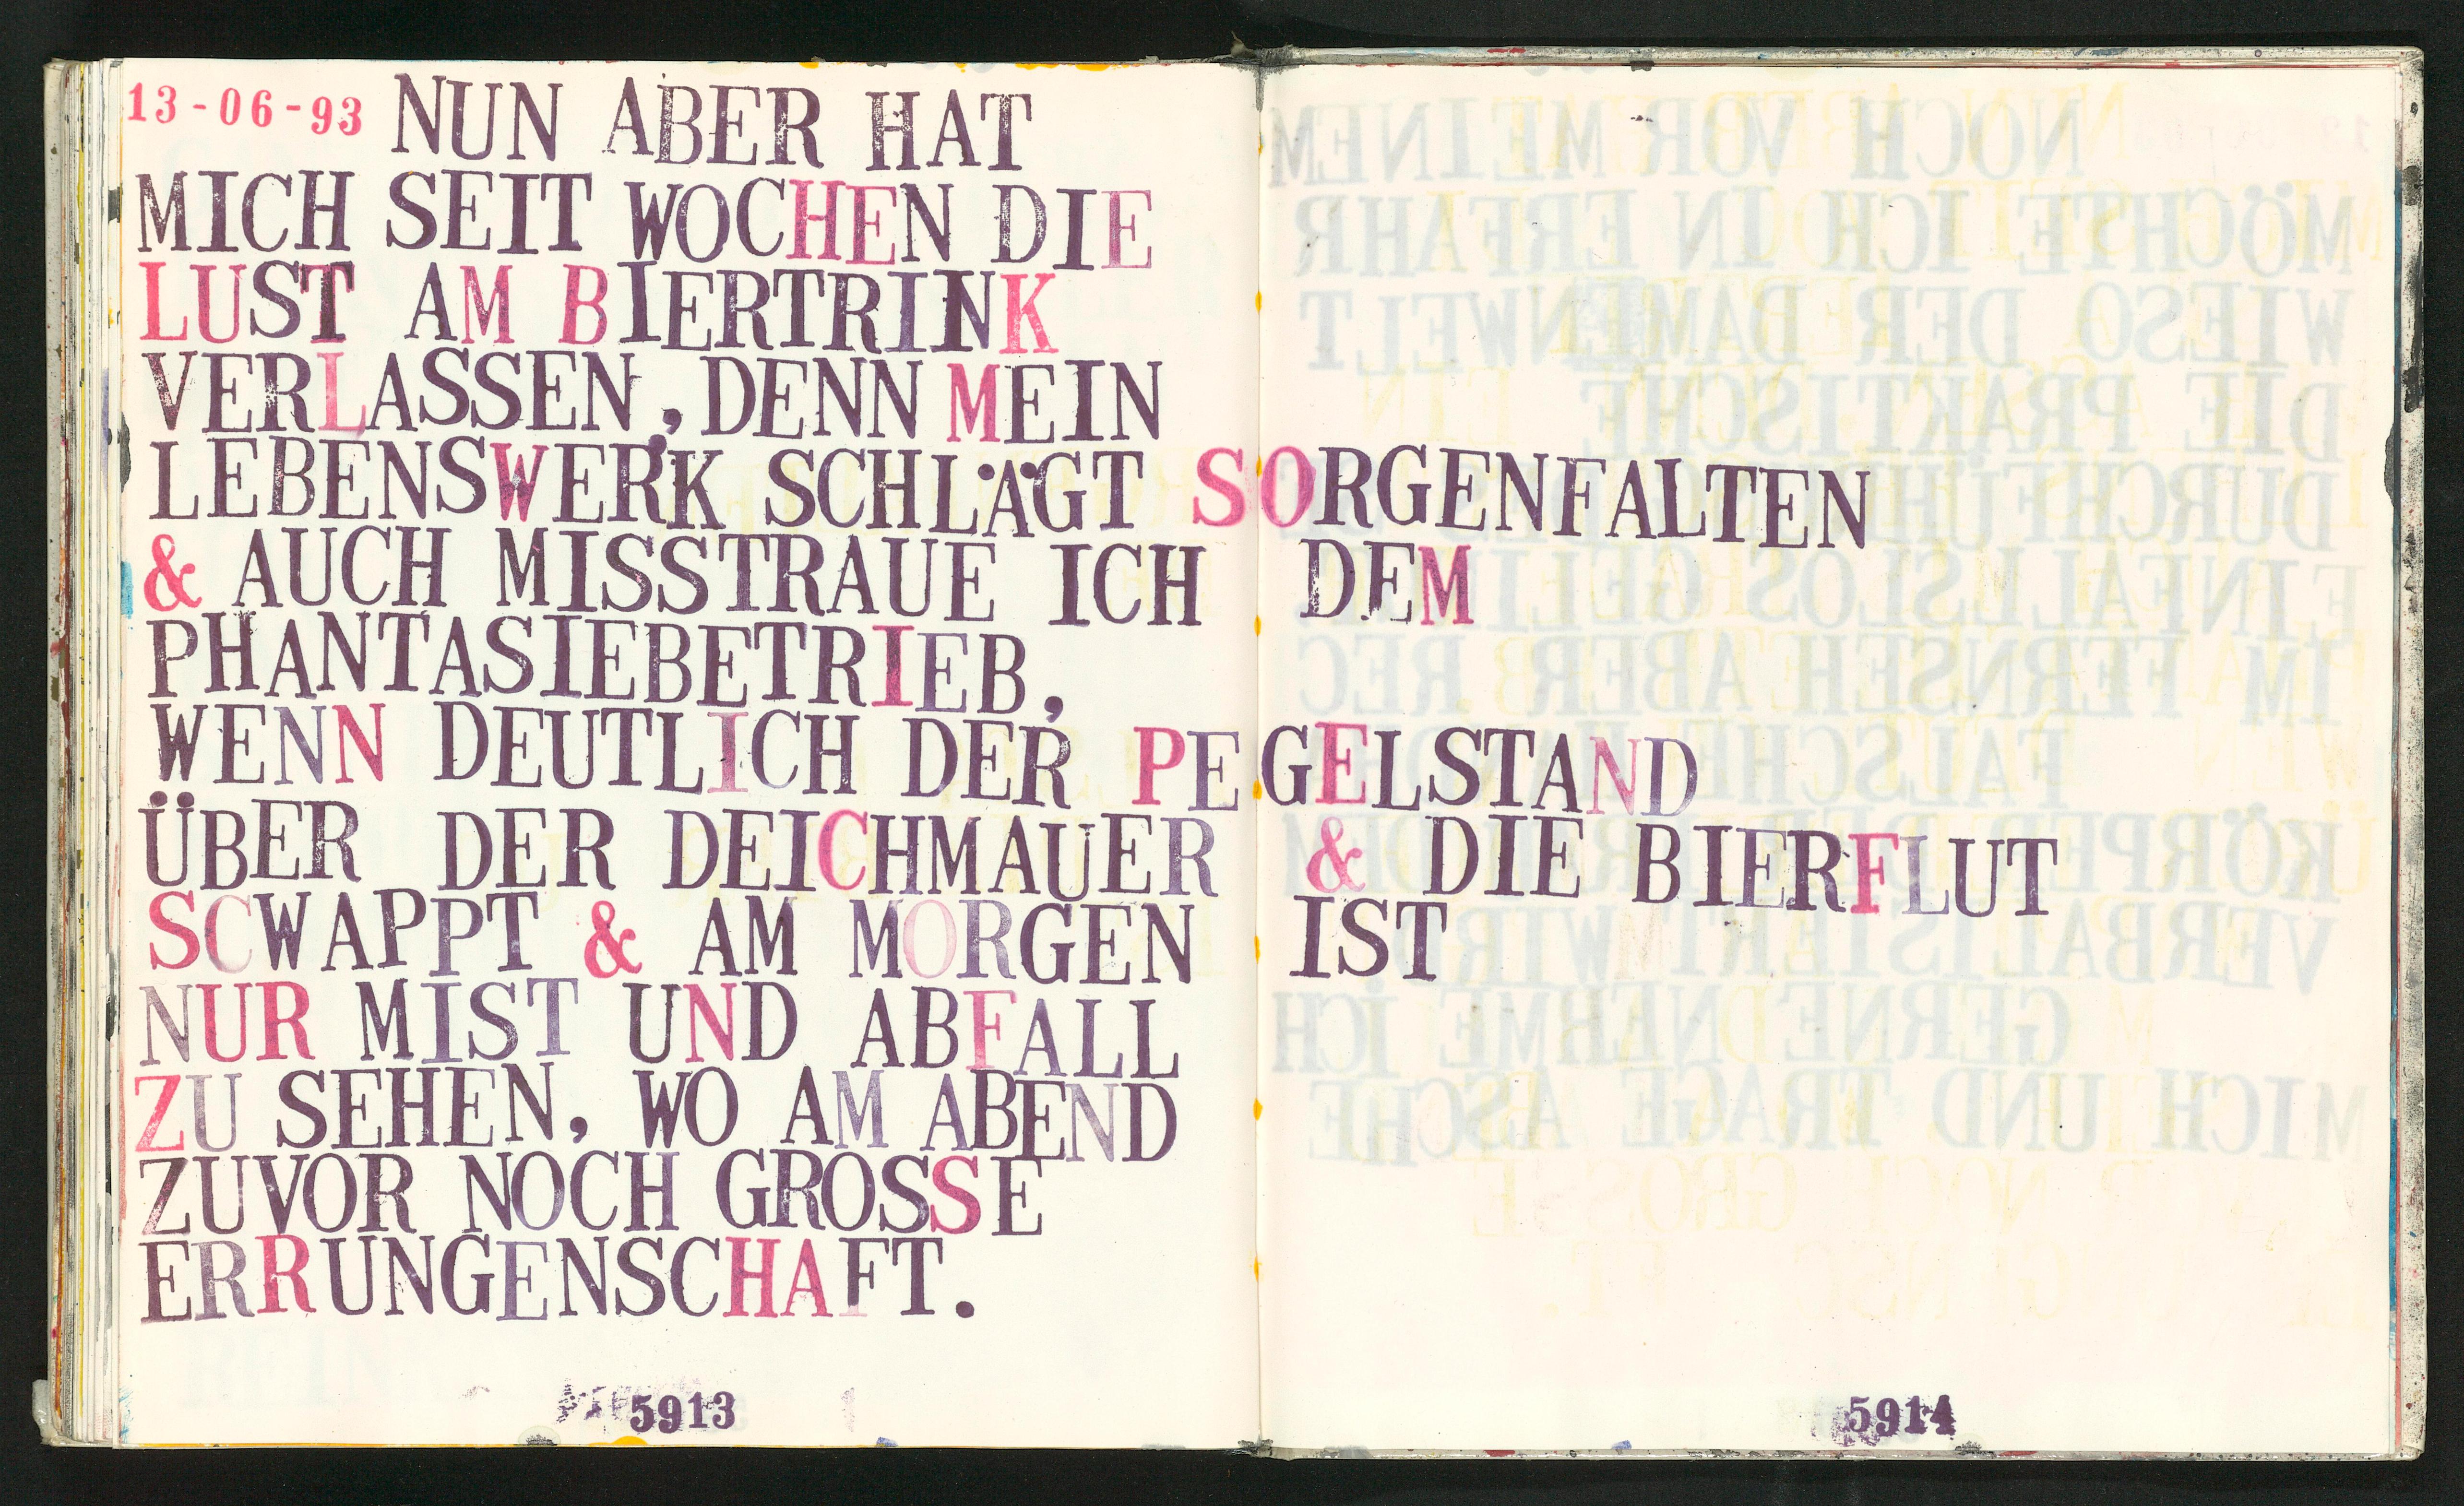 13-06-93 NUN ABER HAT
MICH SEIT WOCHEN DIE
LUST AM BIERTRINK
VERLASSEN, DENN MEIN
LEBENSWERK SCHLÄGT SORGENFALTEN
& AUCH MISSTRAUE ICH DEM
PHANTASIEBETRIEB,
WENN DEUTLICH DER PEGELSTAND
ÜBER DER DEICHMAUER & DIE BIERFLUT
SCWAPPT & AM MORGEN IST
NUR MIST UND ABFALL
ZU SEHEN, WO AM ABEND
ZUVOR NOCH GROSSE
ERRUNGENSCHAFT.
5913
5914